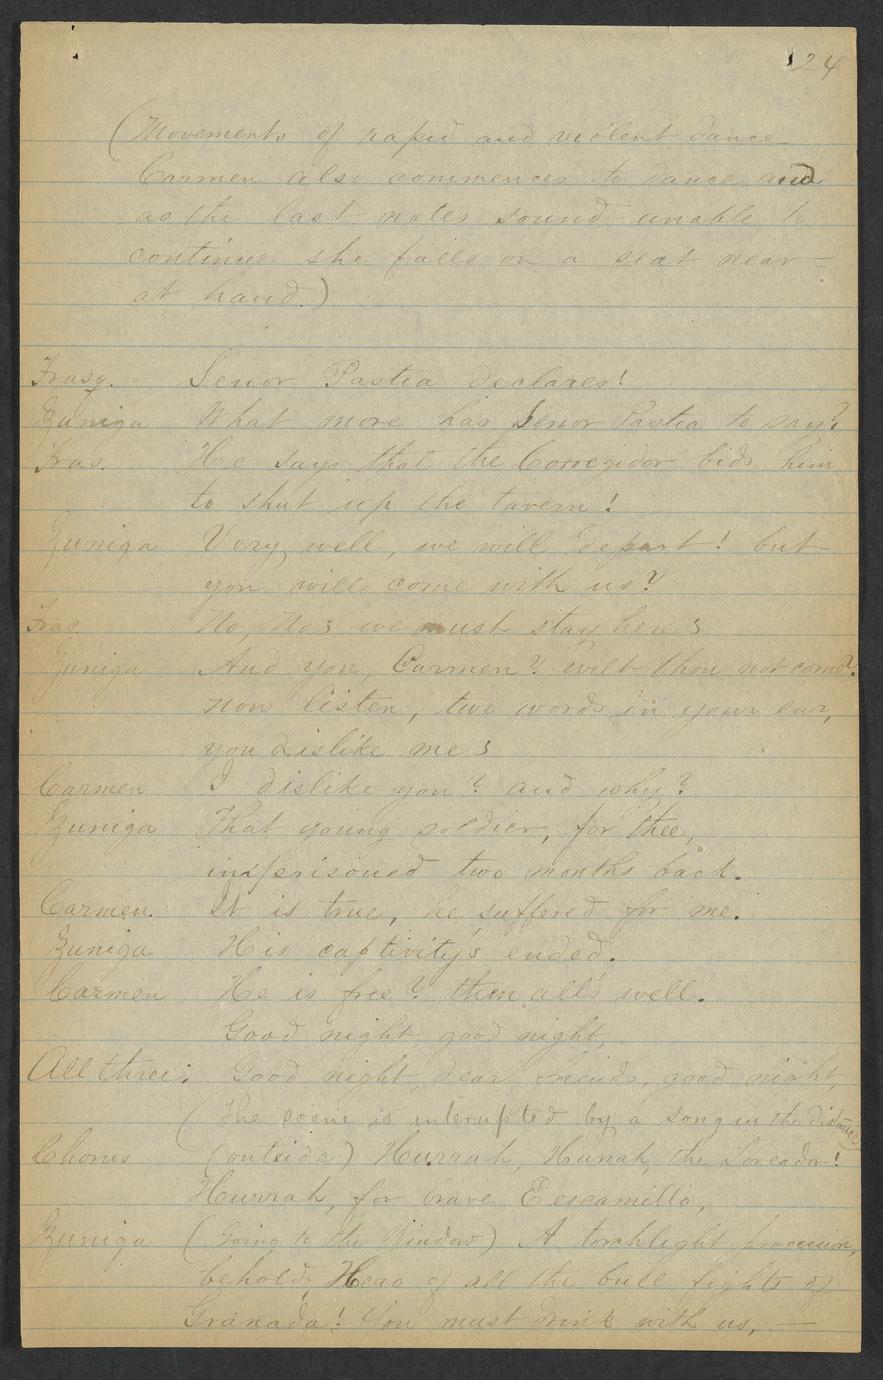 24
(Movements of rapid and violent dance
Carmen also commences to dance and
as the last notes sound unable to
continue she falls on a seat near-
at hand.)
Frasq. Senor Pastia declares!
Zuniga What more has Senor Pastia to say?
Fras. He says that the Corregidor bids him
to shut up the tavern!
Zuniga Very well, we will depart! but
you will come with us?
Fras. No, No; we must stay here;
Zuniga And you, Carmen? wilt thou not come?
now listen, two words in your ear,
you dislike me;
Carmen I dislike you? and why?
Zuniga That young soldier, for thee,
imprisoned two months back.
Carmen. It is true, he suffered for me.
Zuniga His captivity's ended.
Carmen He is free? then all's well.
Good night good night,
All three: Good night, dear friends, good night,
(The scene is interupted by a song in the distance)
Chorus (outside) Hurrah, Hurrah, the Toreador!
Hurrah, for brave Eescamillo,
Zuniga (Going to the Window) A torchlight procession,
behold, Hero of all the bull fights of
Granada! You must drink with us, —